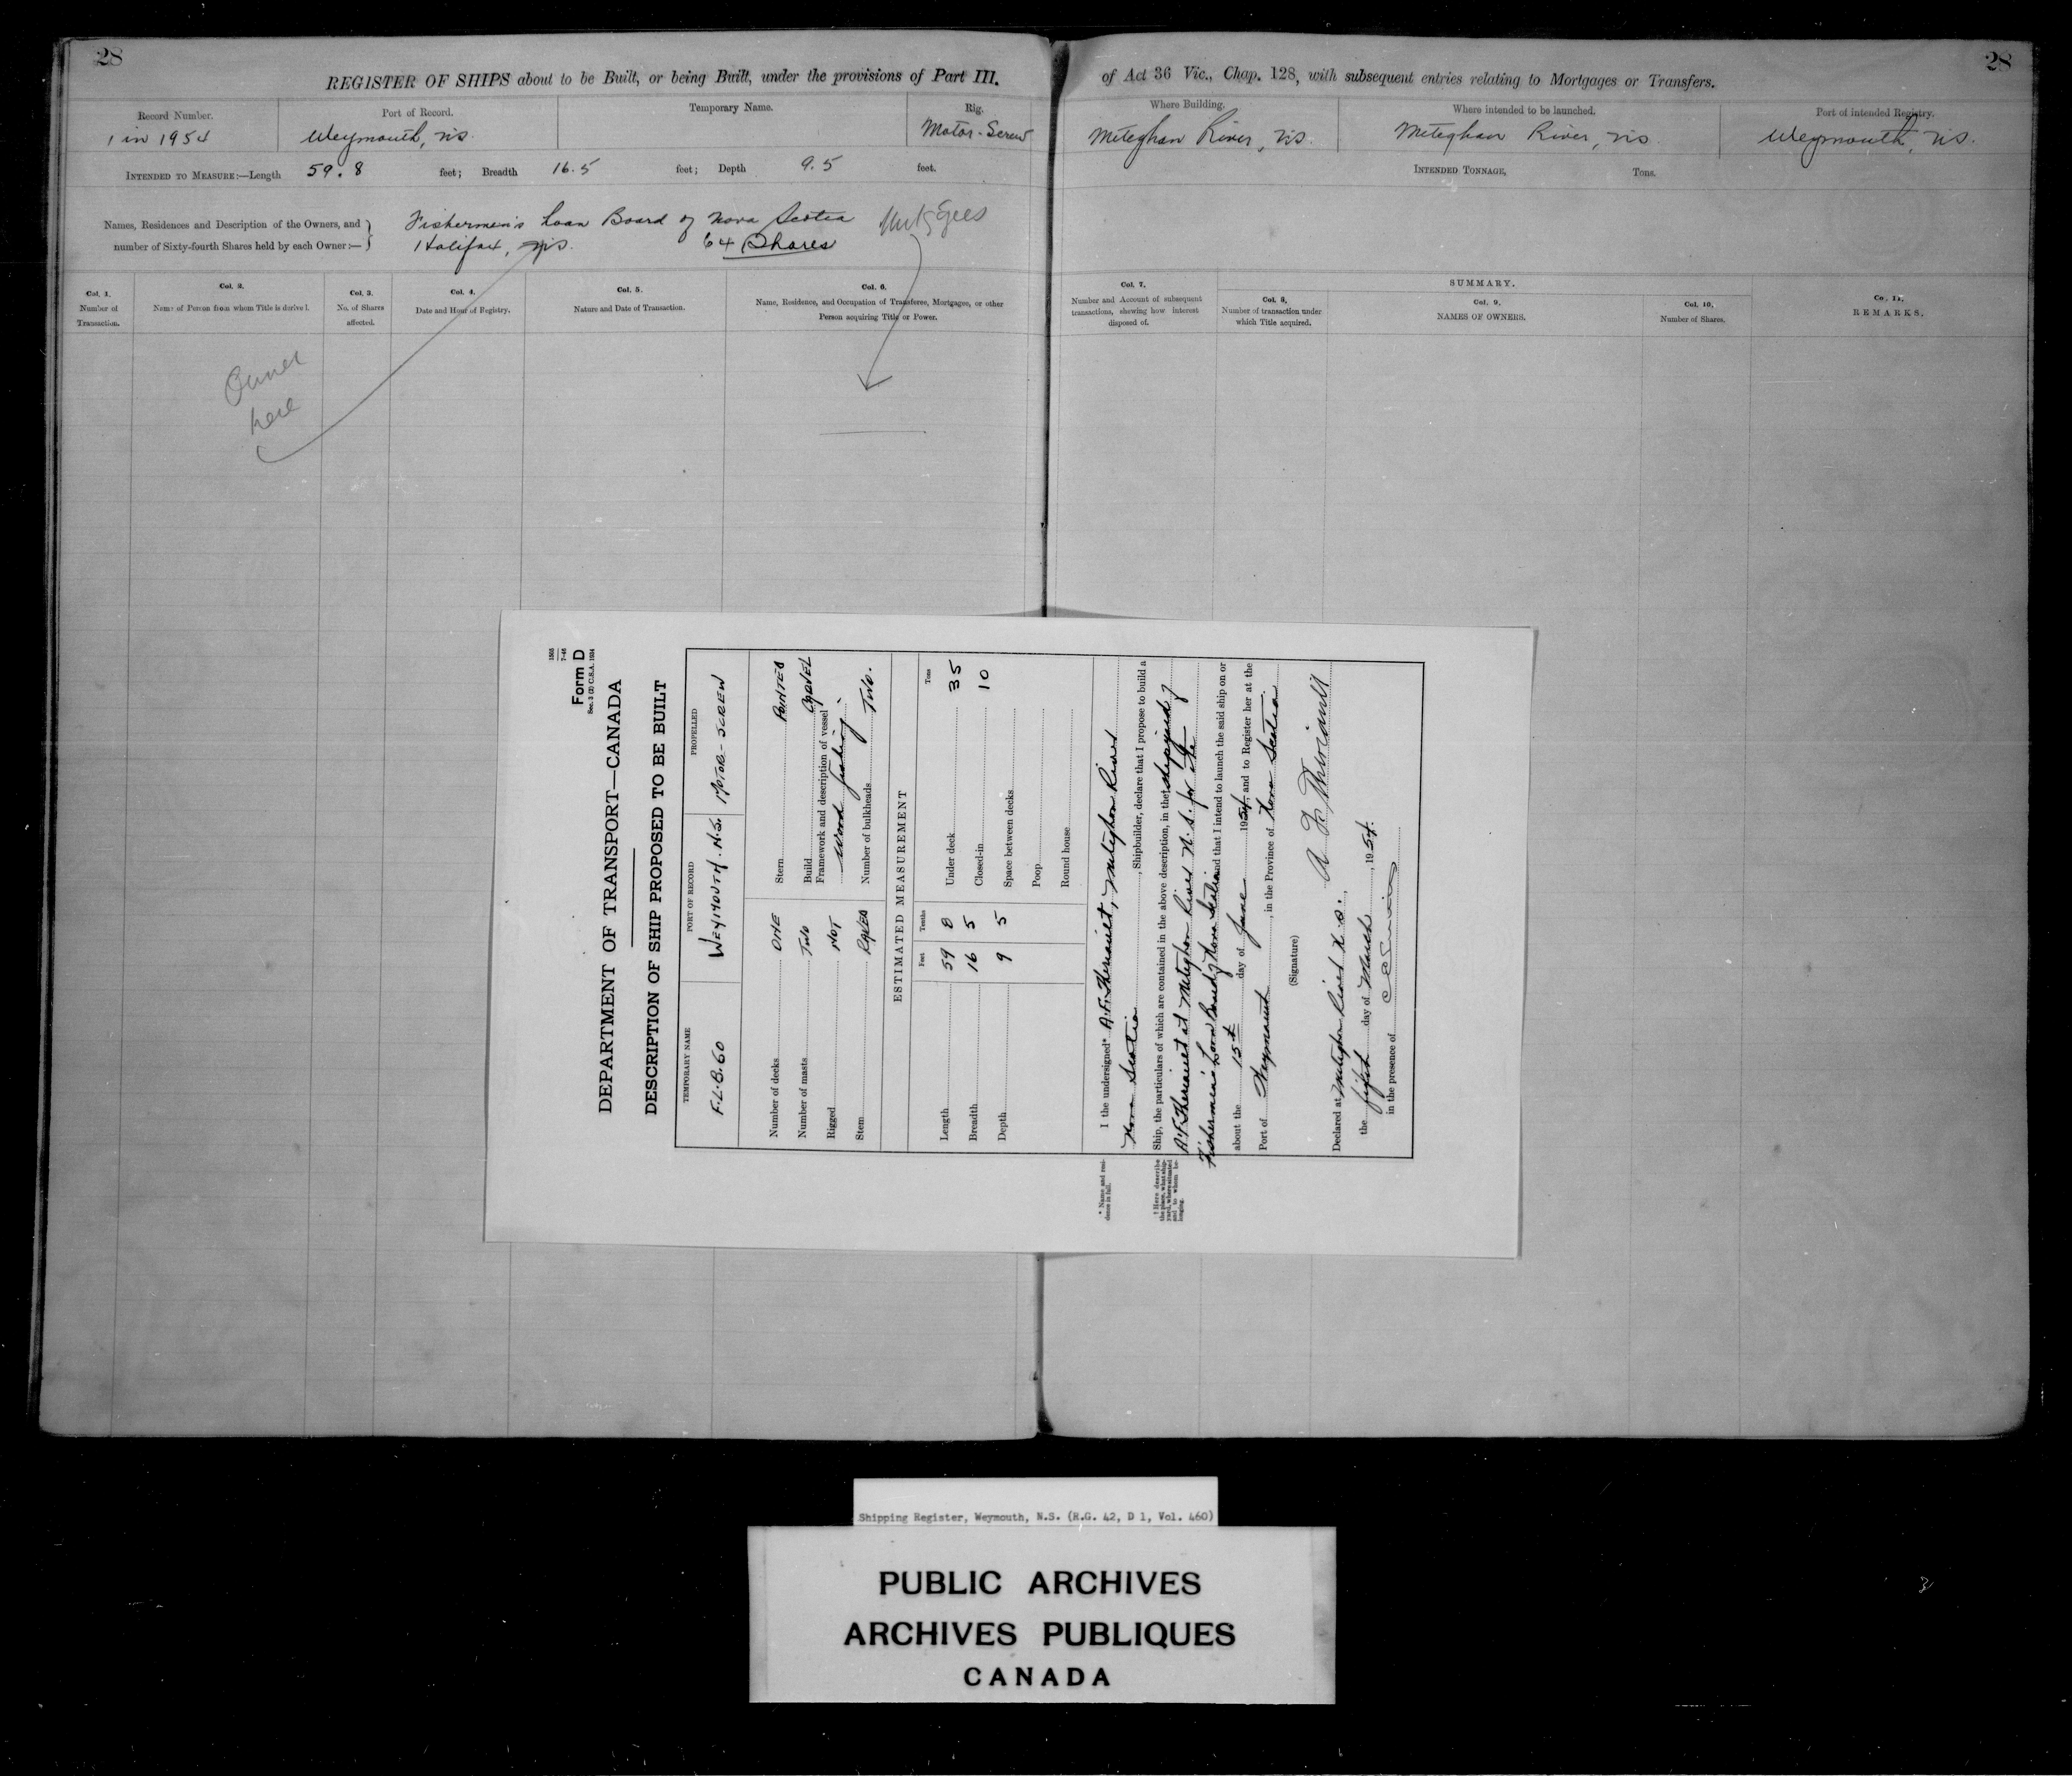 28
28
REGISTER OF SHIPS about to be Built, or being Built, under the provisions of Part III. of Act 36 Vic., Chap. 128, with subsequent entries relating to Mortgages or Transfers.
Record Number.
1 in 1954
Port of Record.
Weymouth, NS.
Temporary Name.
Rig.
Motor-Screw
Where Building.
Meteghan River, NS.
Where intended to be launched.
Meteghan River, NS
Port of intended Registry.
Weymouth, NS.
INTENDED TO MEASURE:—Length 59.8 feet; Breadth 16.5 feet; Depth 9.5 feet.
INTENDED TONNAGE, Tons.
Names, Residences and Description of the Owners, and
number of Sixty-fourth Shares held by each Owner:—
Fishermen's Loan Board of Nova Scotia
Halifax, NS. 64 Shares
Mortgagees
Col. 1.
Number of
Transaction.
Col. 2.
Name of Person from whom Title is derived.
Col. 3.
No. of Shares
affected.
Col. 4.
Date and Hour of Registry.
Col. 5.
Nature and Date of Transaction.
Col. 6.
Name, Residence, and Occupation of Transferee, Mortgagee, or other
Person acquiring Title or Power.
Col. 7.
Number and Account of subsequent
transactions, shewing how interest
disposed of.
SUMMARY.
Col. 8.
Number of transaction under
which Title acquired.
Col. 9.
NAMES OF OWNERS.
Col. 10.
Number of Shares.
Col. 11.
REMARKS.
Owner
here
1565
7-46
Form D
Sec. 3 (2) C.S.A. 1934
DEPARTMENT OF TRANSPORT—CANADA
DESCRIPTION OF SHIP PROPOSED TO BE BUILT
TEMPORARY NAME
F.L.B. 60
PORT OF RECORD
WEYMOUTH. N.S.
PROPELLED
MOTOR-SCREW
Number of decks ONE
Number of masts TWO
Rigged NOT
Stem RAKED
Stern POINTED
Build CARVEL
Framework and description of vessel
Wood fishing
Number of bulkheads TWO.
ESTIMATED MEASUREMENT
Feet Tenths
Length 59 8
Breadth 16 5
Depth 9 5
Tons
Under deck 35
Closed-in 10
Space between decks
Poop
Round house
* Name and residence in full.
I the undersigned* A.F. Theriault, Meteghan River
Nova Scotia, Shipbuilder, declare that I propose to build a
Ship, the particulars of which are contained in the above description, in the† shipyard of
A.F. Theriault at Meteghan River N.S. for the
Fishermen's Loan Board of Nova Scotia and that I intend to launch the said ship on or
about the 15th day of June 1954, and to Register her at the
Port of Weymouth, in the Province of Nova Scotia
† Here describe
the place, what ship-
yard, where situated
and to whom be-
longing.
(Signature) A. F. Theriault
Declared at Meteghan River N.S.,
the first day of March, 1954.
in the presence of
Shipping Register, Weymouth, N.S. (R.G. 42, D 1, Vol. 460)
PUBLIC ARCHIVES
ARCHIVES PUBLIQUES
CANADA